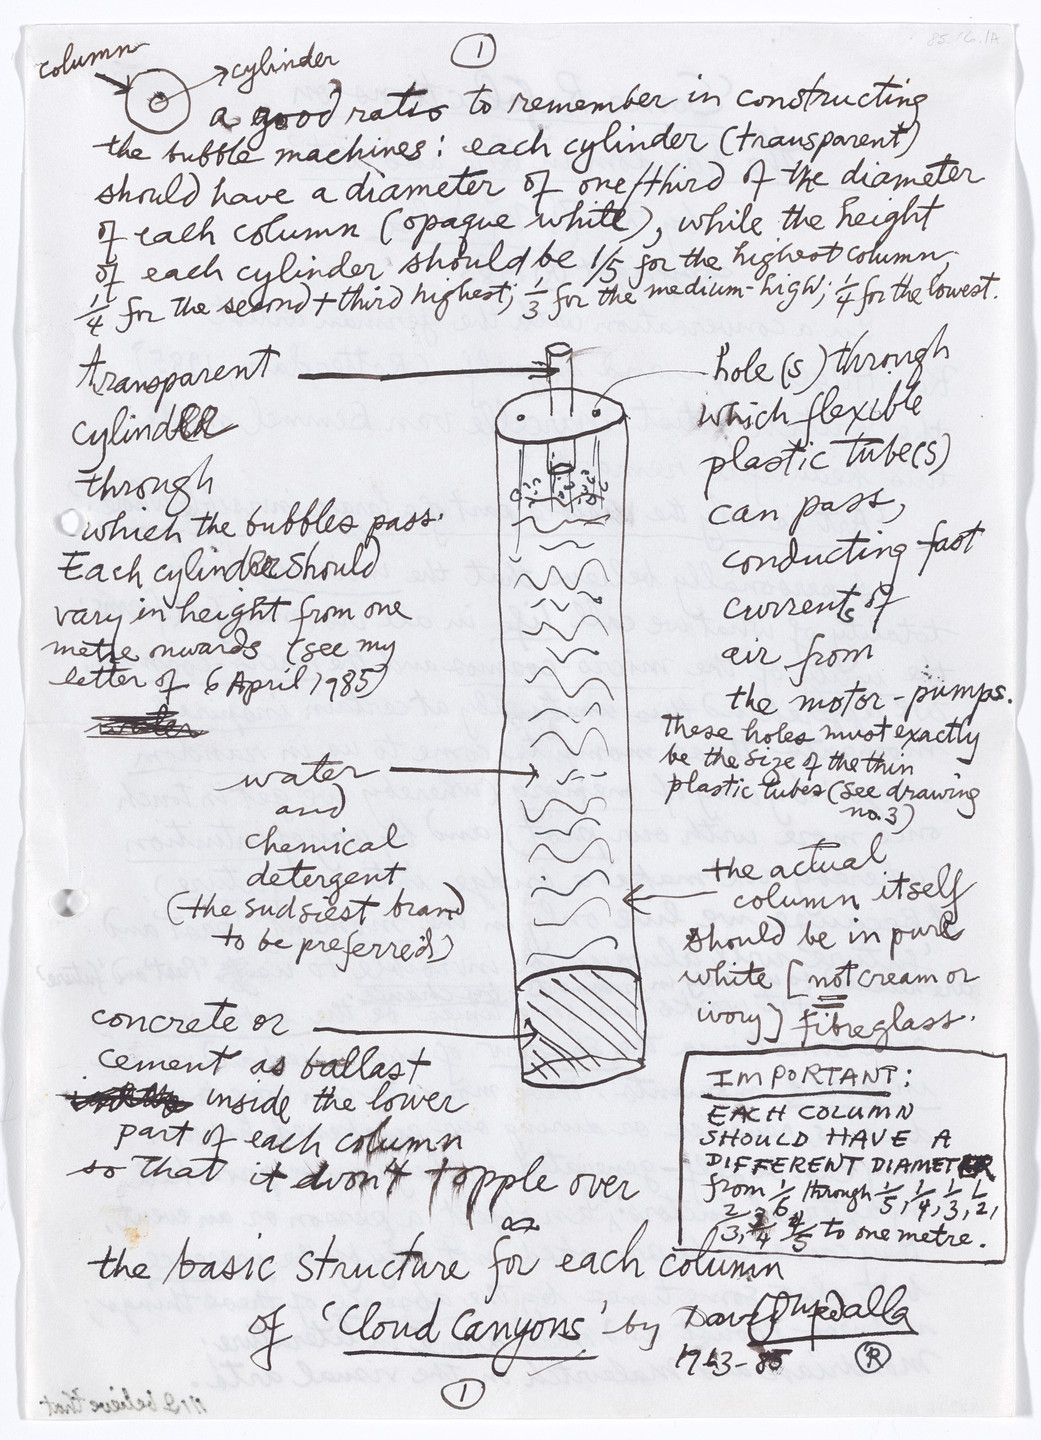 1
85.16.1A
column
cylinder
a good ratio to remember in constructing
the bubble machines: each cylinder (transparent)
should have a diameter of one/third of the diameter
of each column (opaque white), while the height
of each cylinder should be 1/5 for the highest column,
1/4 for the second + third highest; 1/3 for the medium-high; 1/4 for the lowest.
transparent
cylinder
through
which the bubbles pass.
Each cylinder should
vary in height from one
metre onwards (see my
letter of 6 April 1985)
hole(s) through
which flexible
plastic tube(s)
can pass,
conducting fast
currents of
air from
the motor-pumps.
These holes must exactly
be the size of the thin
plastic tubes (see drawing
no.3)
water
and
chemical
detergent
(the sudsiest brand
to be preferred)
the actual
column itself
should be in pure
white [not cream or
ivory] fibreglass.
concrete or
cement as ballast
inside the lower
part of each column
so that it won't topple over
IMPORTANT:
EACH COLUMN
SHOULD HAVE A
DIFFERENT DIAMETER
from 1/6 through 1/5, 1/4, 1/3, 1/2,
2/3, 3/4, 4/5 to one metre.
the basic structure for each column
of 'Cloud Canyons' by David Medalla
1963-85
R
1